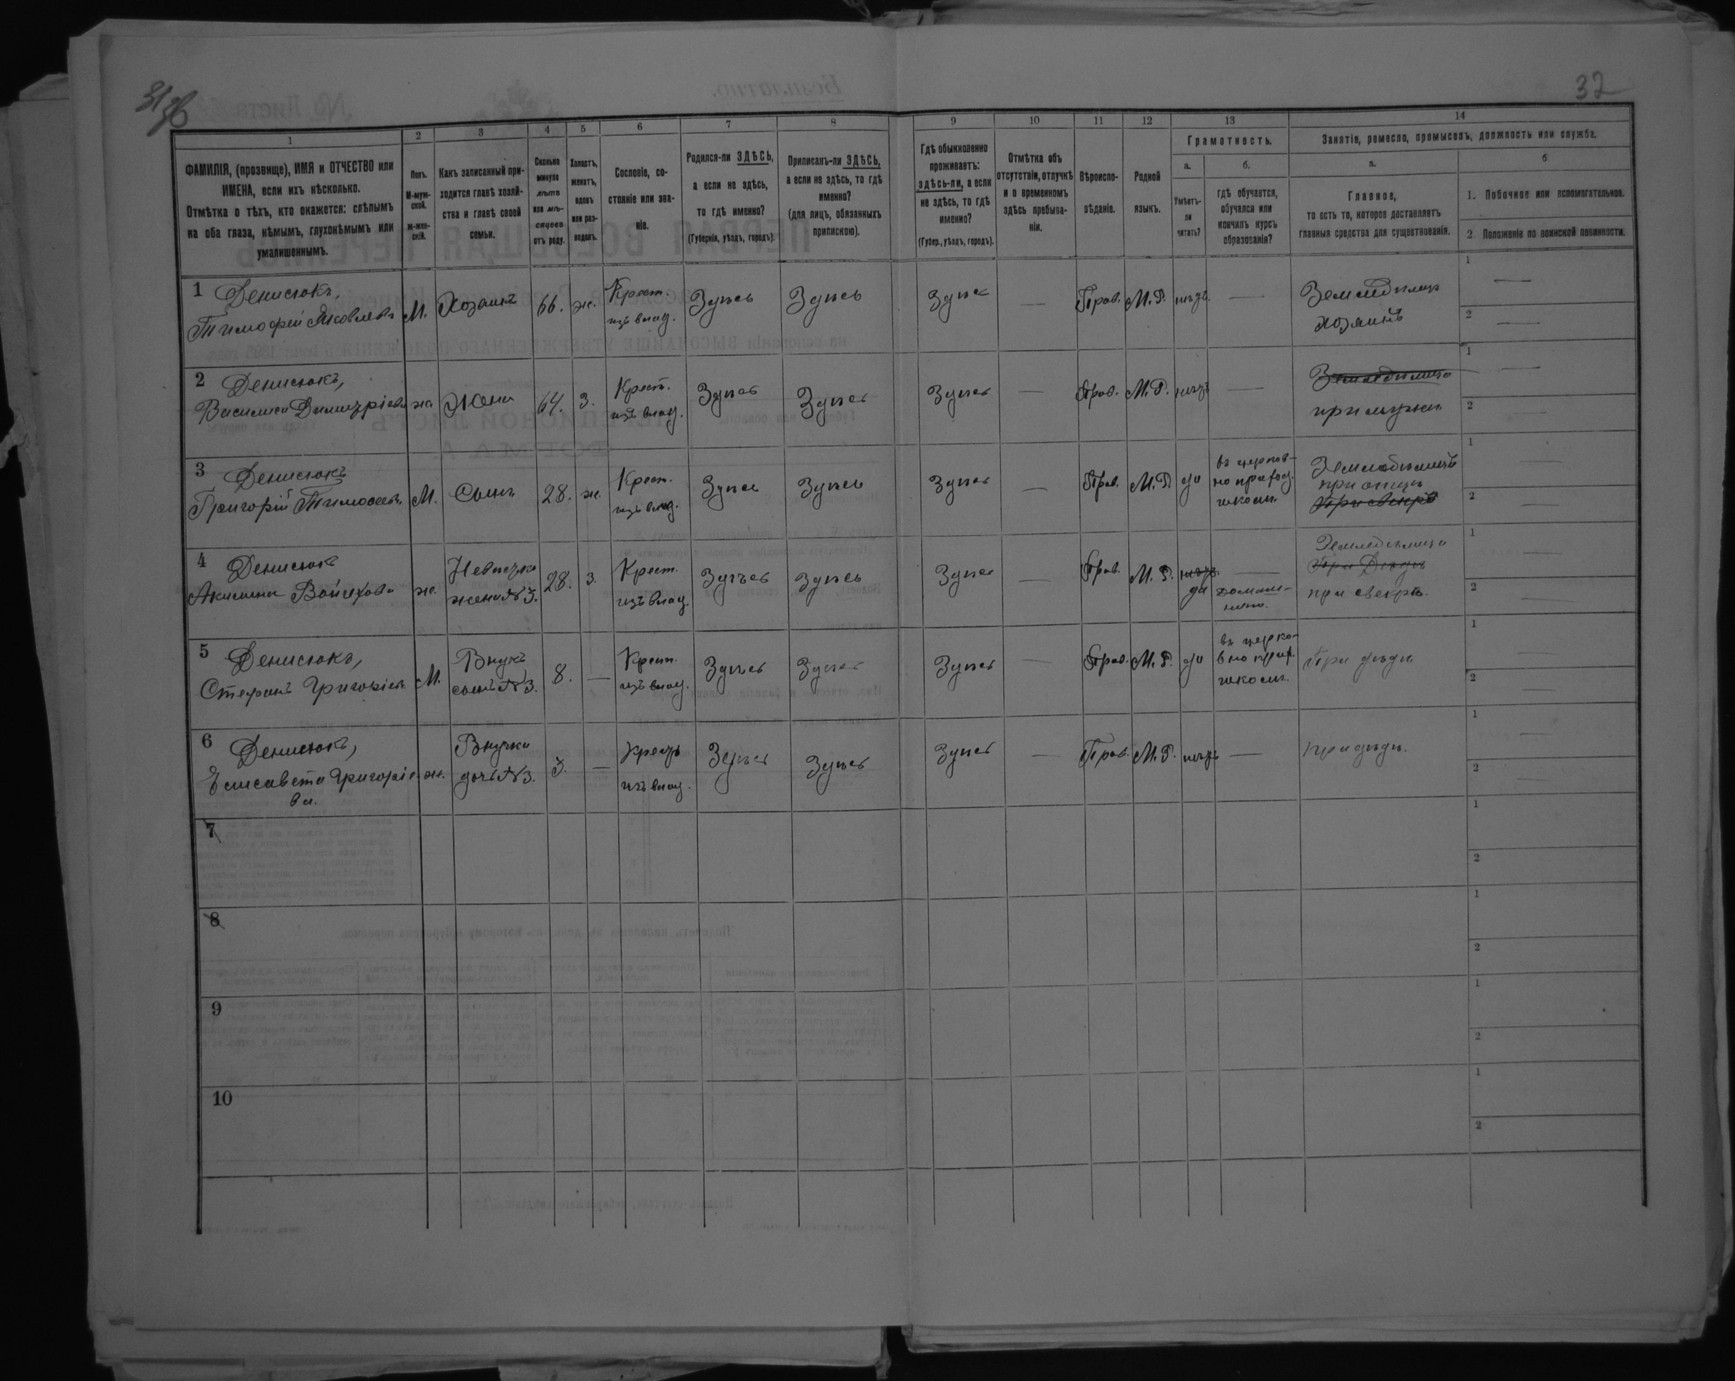 32
1 2 3 4 5 6 7 8 9 10 11 12 13 14
ФАМИЛІЯ, (прозвище), ИМЯ и ОТЧЕСТВО или
ИМЕНА, если ихъ нѣсколько.
Отмѣтка о тѣхъ, кто окажется: слѣпымъ
на оба глаза, нѣмымъ, глухонѣмымъ или
умалишеннымъ.
Полъ.
М-муж-
ской.
ж-жен-
скій.
Какъ записанный при-
ходится главѣ хозяй-
ства и главѣ своей
семьи.
Сколько
минуло
лѣтъ
или мѣ-
сяцевъ
отъ роду.
Холостъ,
женатъ,
вдовъ
или раз-
веденъ.
Сословіе, со-
стояніе или зва-
ніе.
Родился-ли ЗДѢСЬ,
а если не здѣсь,
то гдѣ именно?
(Губернія, уѣздъ, городъ).
Приписанъ-ли ЗДѢСЬ,
а если не здѣсь, то гдѣ
именно?
(для лицъ, обязанныхъ
припискою).
Гдѣ обыкновенно
проживаетъ:
здѣсь-ли, а если
не здѣсь, то гдѣ
именно?
(Губер., уѣздъ, городъ).
Отмѣтка объ
отсутствіи, отлучкѣ
и о временномъ
здѣсь пребыва-
ніи.
Вѣроиспо-
вѣданіе.
Родной
языкъ.
Грамотность.
а.
Умѣетъ-
ли
читать?
б.
гдѣ обучается,
обучался или
кончилъ курсъ
образованія?
Занятія, ремесло, промыселъ, должность или служба.
а.
Главное,
то есть то, которое доставляетъ
главныя средства для существованія.
б
1. Побочное или вспомогательное.
2 Положеніе по воинской повинности.
1 Денисюкъ,
Тимофей Яковлевъ М. Хозяинъ 66. ж. Крест.
изъ влад. Здѣсь Здѣсь Здѣсь — Прав. М.Р. нѣтъ — Земледѣлецъ
хозяинъ
1 —
2 —
2 Денисюкъ,
Василиса Димитріева ж. Жена 64. з. Крест.
изъ влад. Здѣсь Здѣсь Здѣсь — Прав. М.Р. нѣтъ — Земледѣлица
при мужѣ
1 —
2 —
3 Денисюкъ
Григорій Тимофеевъ М. Сынъ 28. ж. Крест.
изъ влад. Здѣсь Здѣсь Здѣсь — Прав. М.Р. да въ церков-
но приход.
школѣ Земледѣлецъ
при отцѣ
1 —
2 —
4 Денисюкъ
ж. Невѣстка
жена №3. 28. з. Крест.
изъ влад. Здѣсь Здѣсь Здѣсь — Прав. М.Р. нѣтъ
да —
Домаш-
Земледѣлица
При Дѣдѣ
при свекрѣ.
1 —
2 —
5 Денисюкъ,
Стефанъ Григоріевъ М. Внукъ
сынъ №3. 8. — Крест.
изъ влад. Здѣсь Здѣсь Здѣсь — Прав. М.Р. да въ церко-
вно прих.
школѣ При дѣдѣ
1 —
2 —
6 Денисюкъ,
Елисавета Григорiе-
ва. ж. Внучка
дочь №3. 3. — Крест.
изъ влад. Здѣсь Здѣсь Здѣсь — Прав. М.Р. нѣтъ — при дѣдѣ.
1 —
2 —
7
1
2
8
1
2
9
1
2
10
1
2